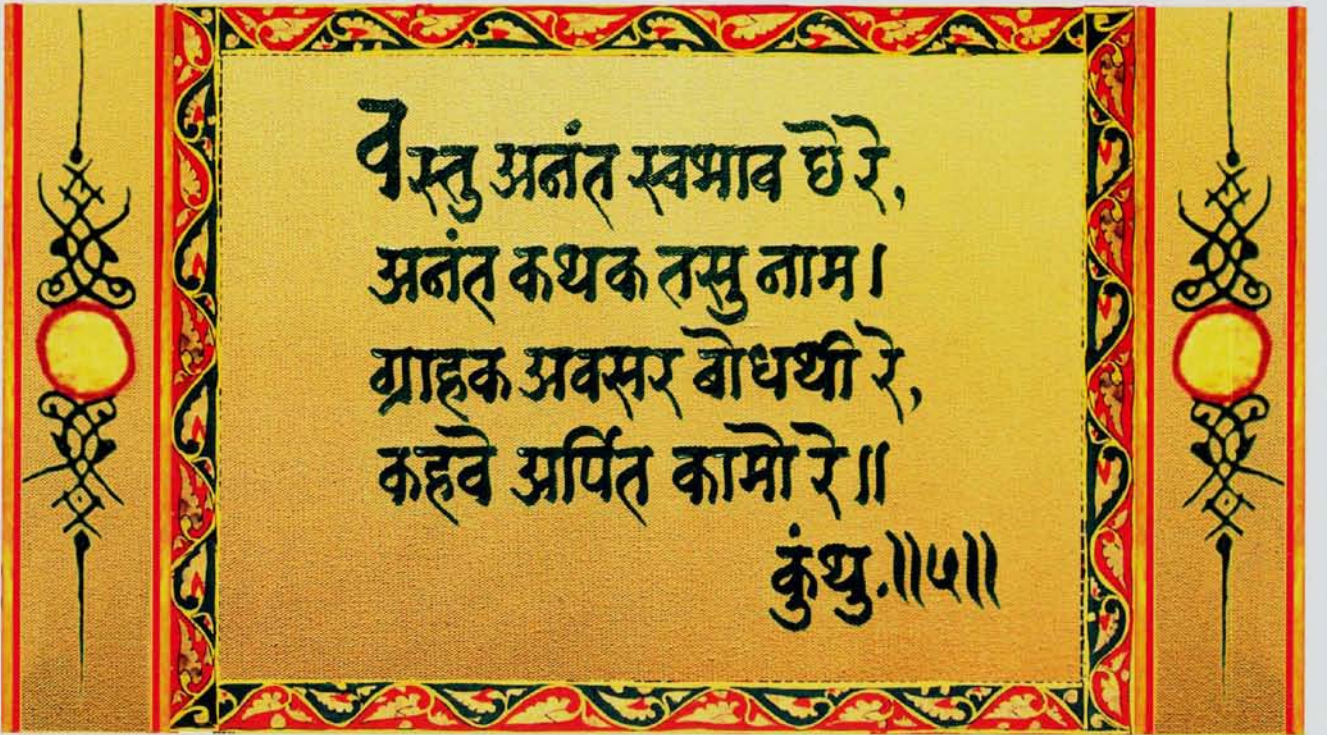 वस्तु अनंत स्वभाव छे रे,
अनंत कथक तसु नाम।
ग्राहक अवसर बोधथी रे,
कहवे अर्पित कामो रे॥
कुंथु.॥५॥